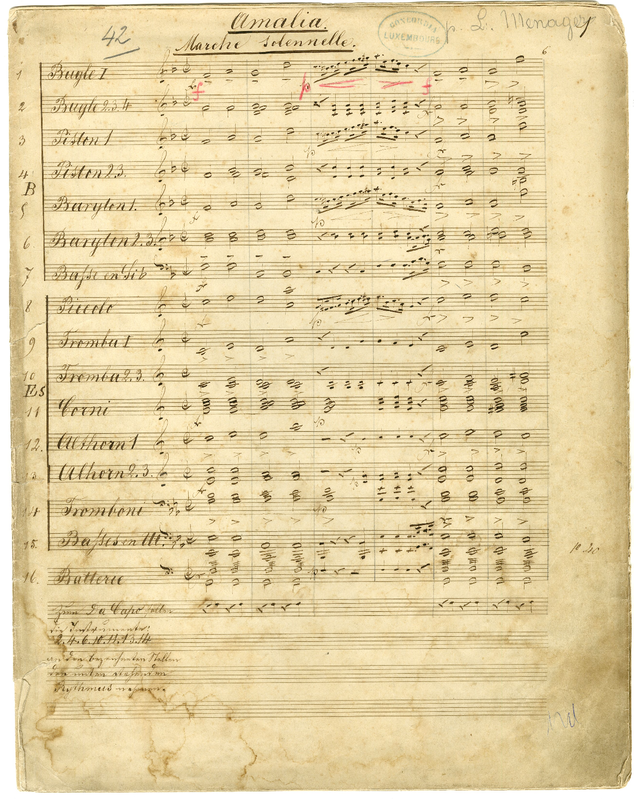 Amalia.
42
p. L. Menager
LUXEMBOURG
Marche solennelle.
6
1 Bugle 1
f p f
2 Bugle 2.3.4
3 Piston 1
4 Piston 2.3.
B
5 Baryton 1.
6 Baryton 2.3.
7 Basse en Sib
8 Piccolo
9 Tromba 1
10 Tromba 2.3.
Es
11 Corni
12. Althorn 1
13 Althorn 2.3.
14 Tromboni
15. Basses en Ut.
16. Batterie
10.20
Zum Da Capo
die Instrumente
2.4.6.10.11.13.14
an den bezeichneten Stellen
den
Rythmus